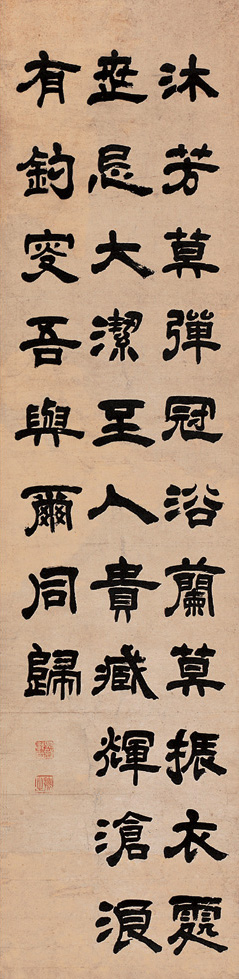 沐芳莫彈冠浴蘭莫振衣處
世忌大潔至人貴藏輝滄浪
有釣叟吾與爾同歸